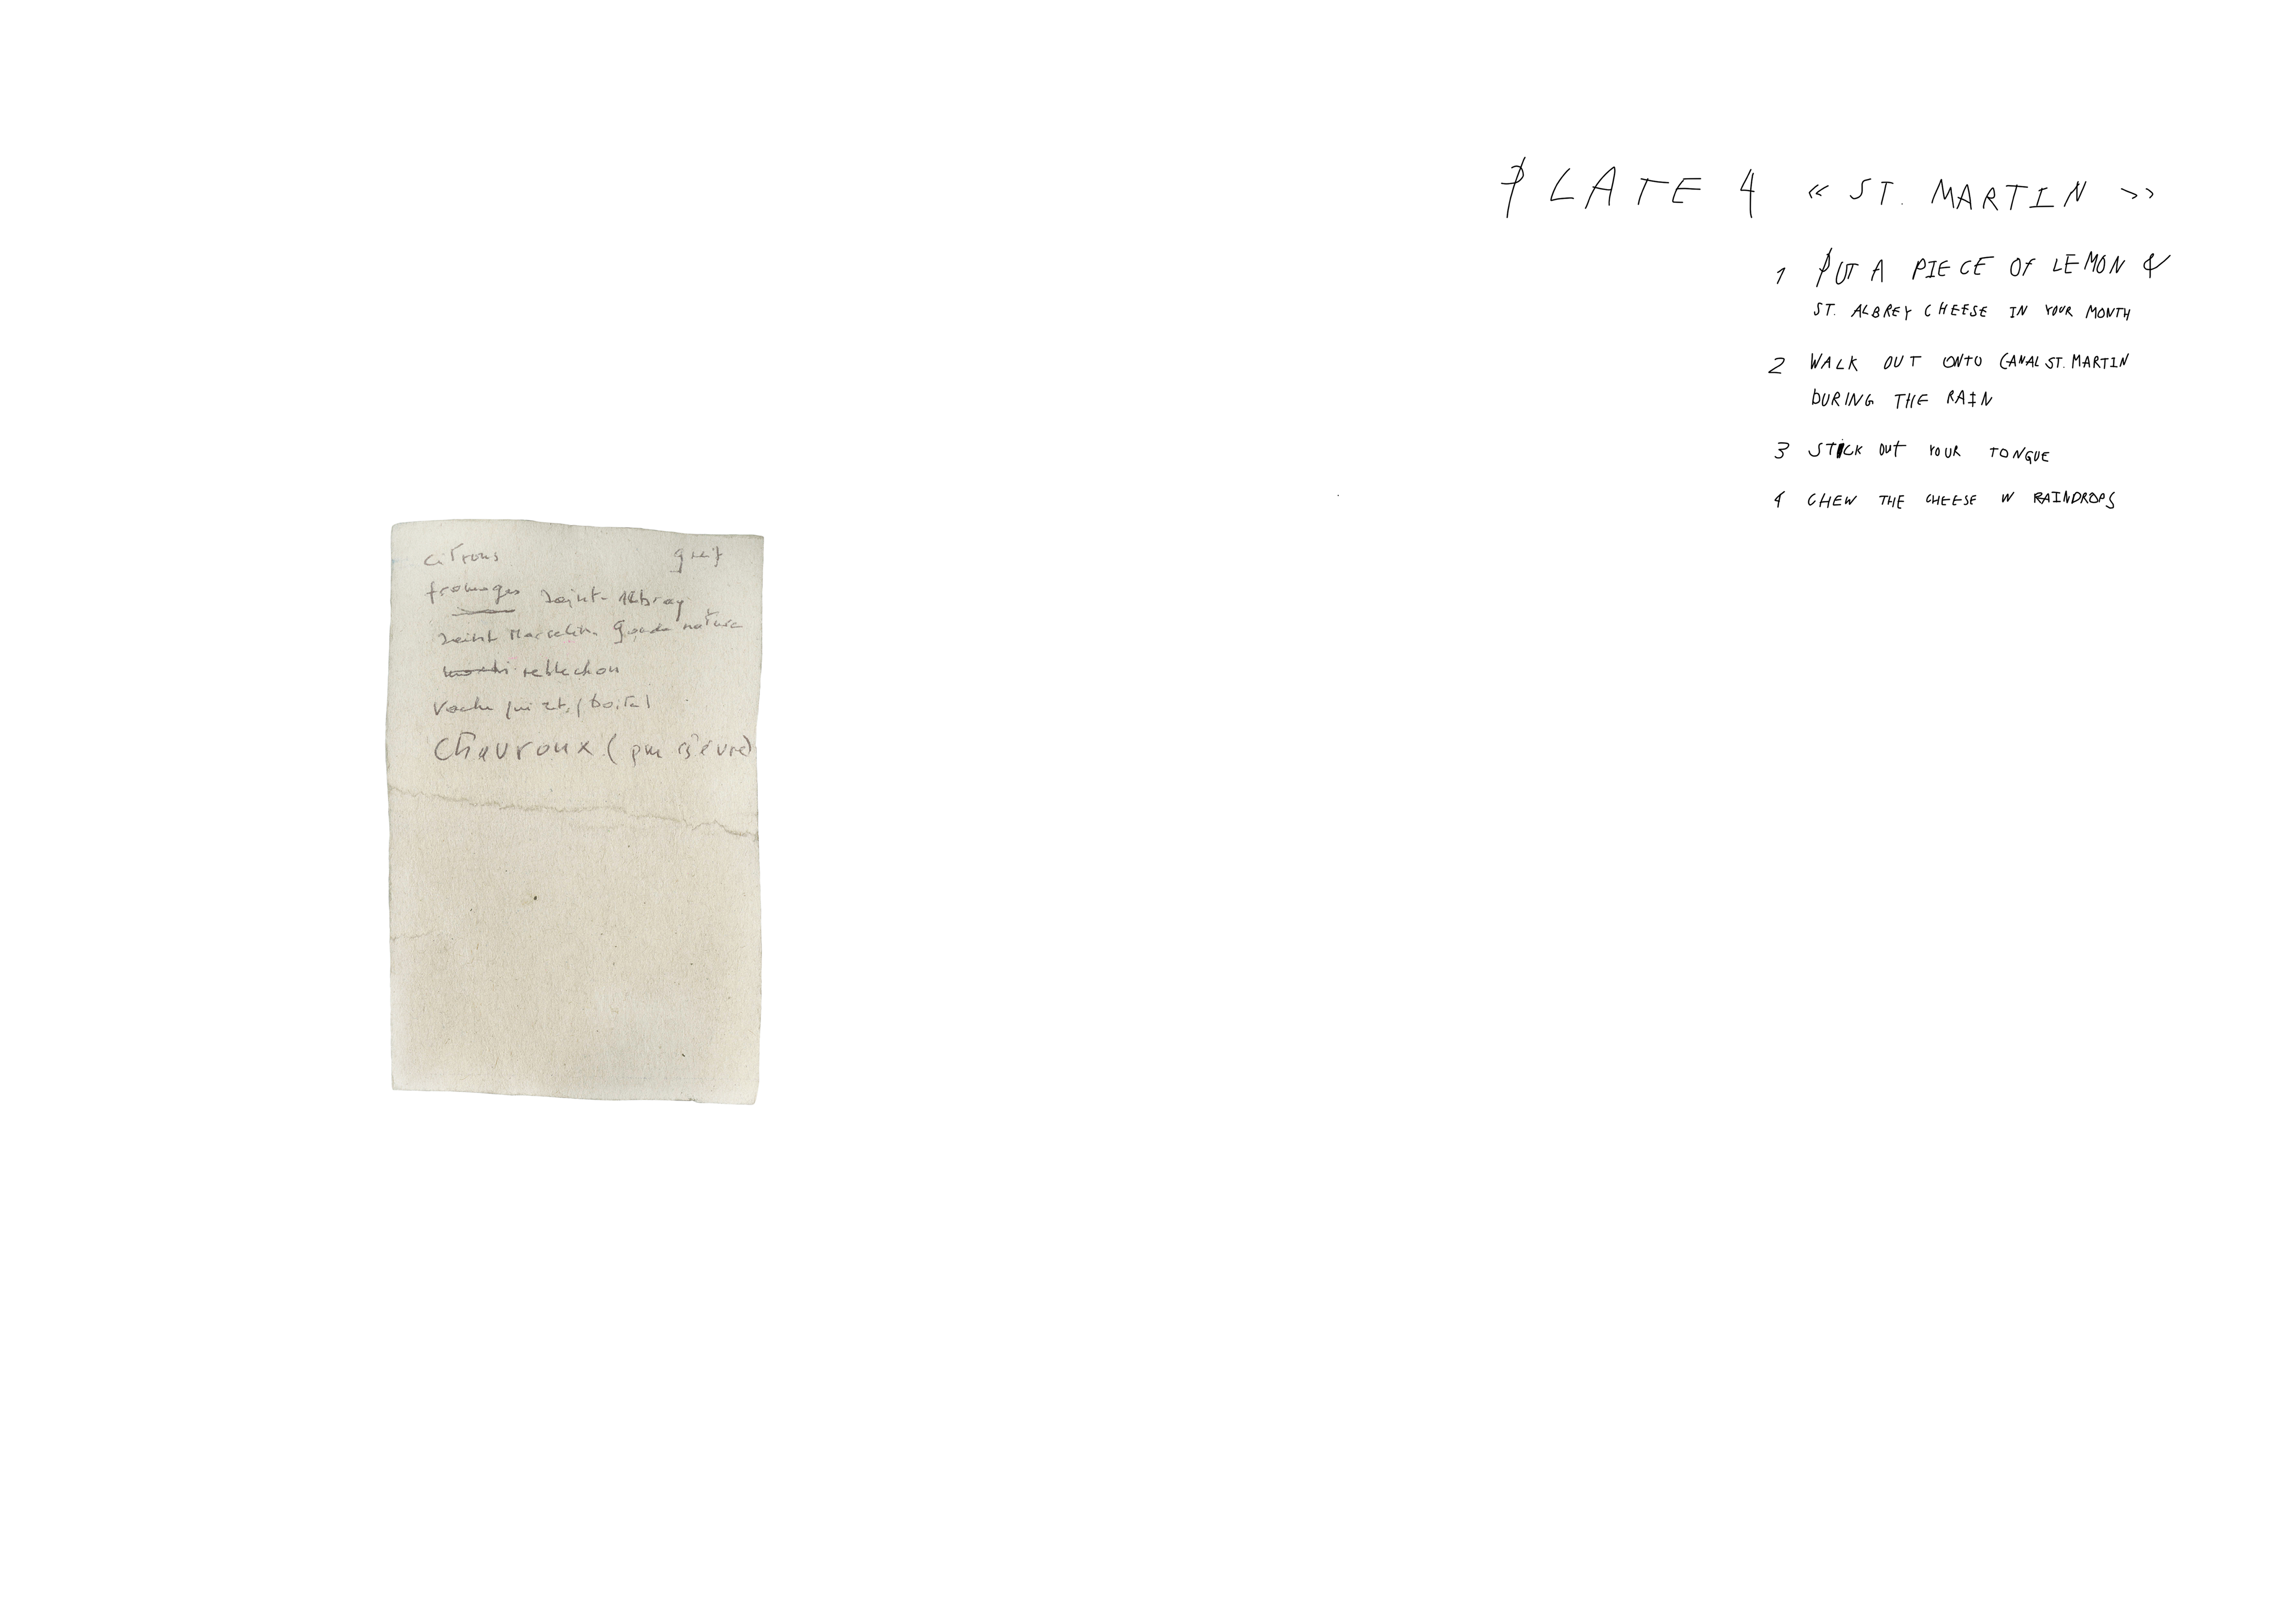 citrons
fromages Saint-Albray
Saint Marcelin. Gouda nature
reblechon
Vache qui rit, (boîte)
Chavroux (pur chèvre)
PLATE 4 « ST. MARTIN »
1 PUT A PIECE OF LEMON &
ST. ALBREY CHEESE IN YOUR MONTH
2 WALK OUT ONTO CANAL ST. MARTIN
DURING THE RAIN
3 STICK OUT YOUR TONGUE
4 CHEW THE CHEESE W RAINDROPS